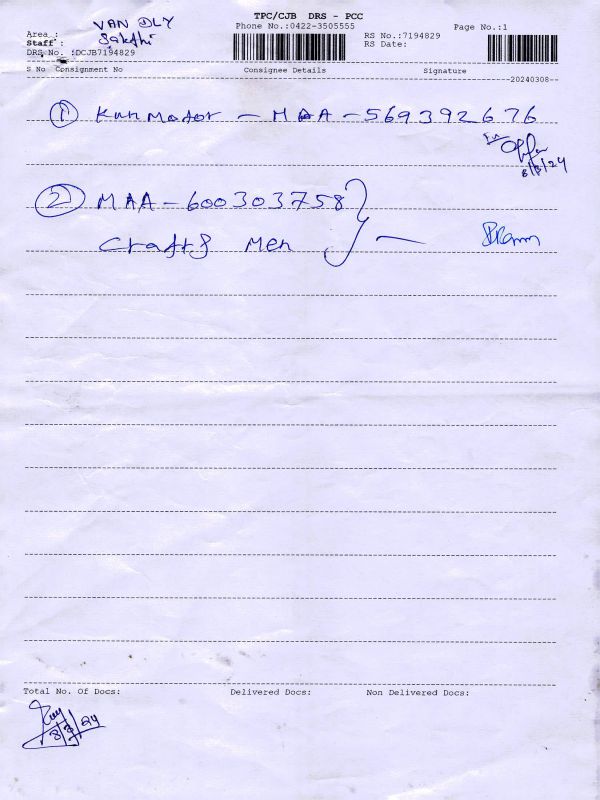 TPC/CJB DRS - PCC
Phone No.:0422-3505555
Page No.:1
Area : VAN DLY
Staff : Sakthi
RS No.:7194829
RS Date:
DRS No. :DCJB7194829
S No Consignment No Consignee Details Signature
20240308
① Kun Motor - MAA - 569392676
8/3/24
② MAA - 600303758
Crafts Men
Total No. Of Docs: Delivered Docs: Non Delivered Docs:
8/3/24